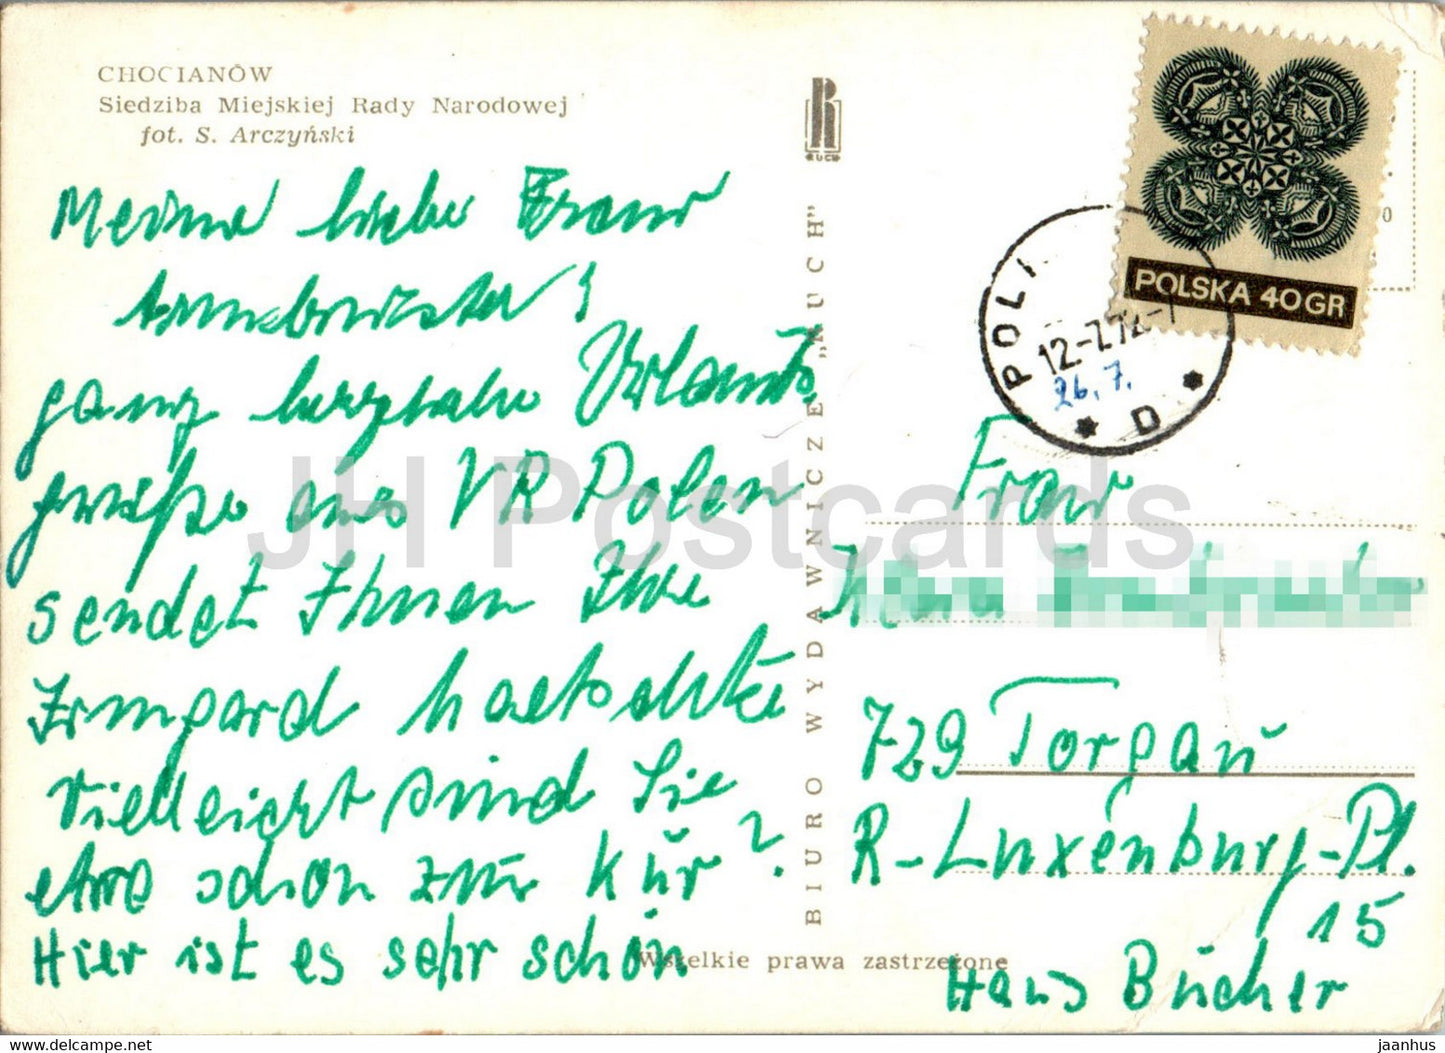 CHOCIANÓW
Siedziba Miejskiej Rady Narodowej
fot. S. Arczyński
Meine liebe Frau
Armbruster!
ganz herzliche Urlaubs
grüße aus VR Polen
sendet Ihnen Ihre
Irmgard
Vielleicht sind Sie
etwa schon zur Kur?
Hier ist es sehr schön
RUCH
BIURO WYDAWNICZE „RUCH"
Wszelkie prawa zastrzeżone
POLSKA 40GR
POL
12.-7.72-
26.7.
D
Frau
729 Torgau
R-Luxenburg-Pl.
15
Hans Bücher
JH Postcards
https://www.jaanhus.com
jaanhus